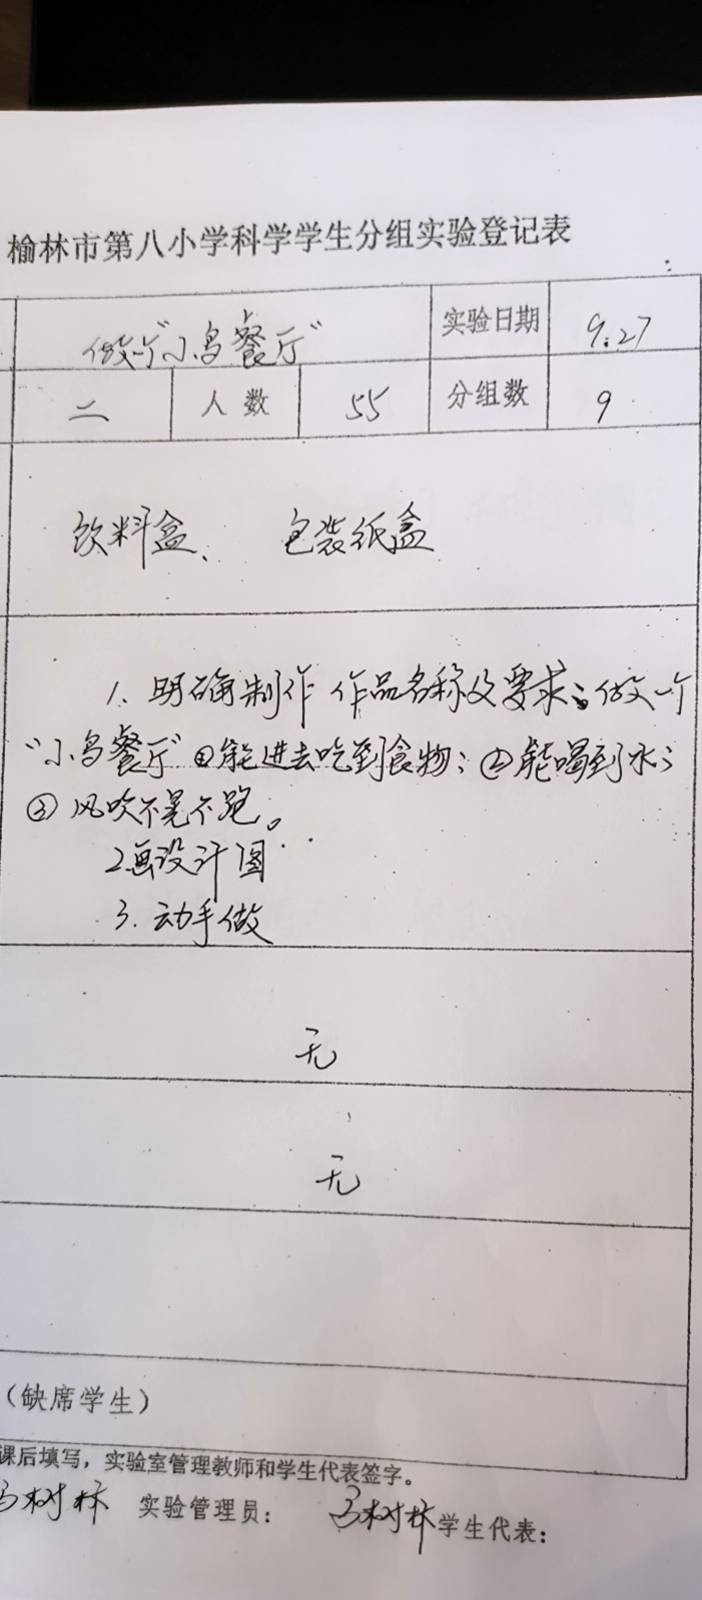 榆林市第八小学科学学生分组实验登记表
做一个“小鸟餐厅” 实验日期 9.27
二 人数 55 分组数 9
饮料盒、 包装纸盒
1、明确制作 作品名称及要求：做一个
“小鸟餐厅”①能进去吃到食物；②能喝到水；
③风吹不晃不跑。
2.画设计图
3.动手做
无
无
（缺席学生）
课后填写，实验室管理教师和学生代表签字。
马树林 实验管理员： 马树林 学生代表：